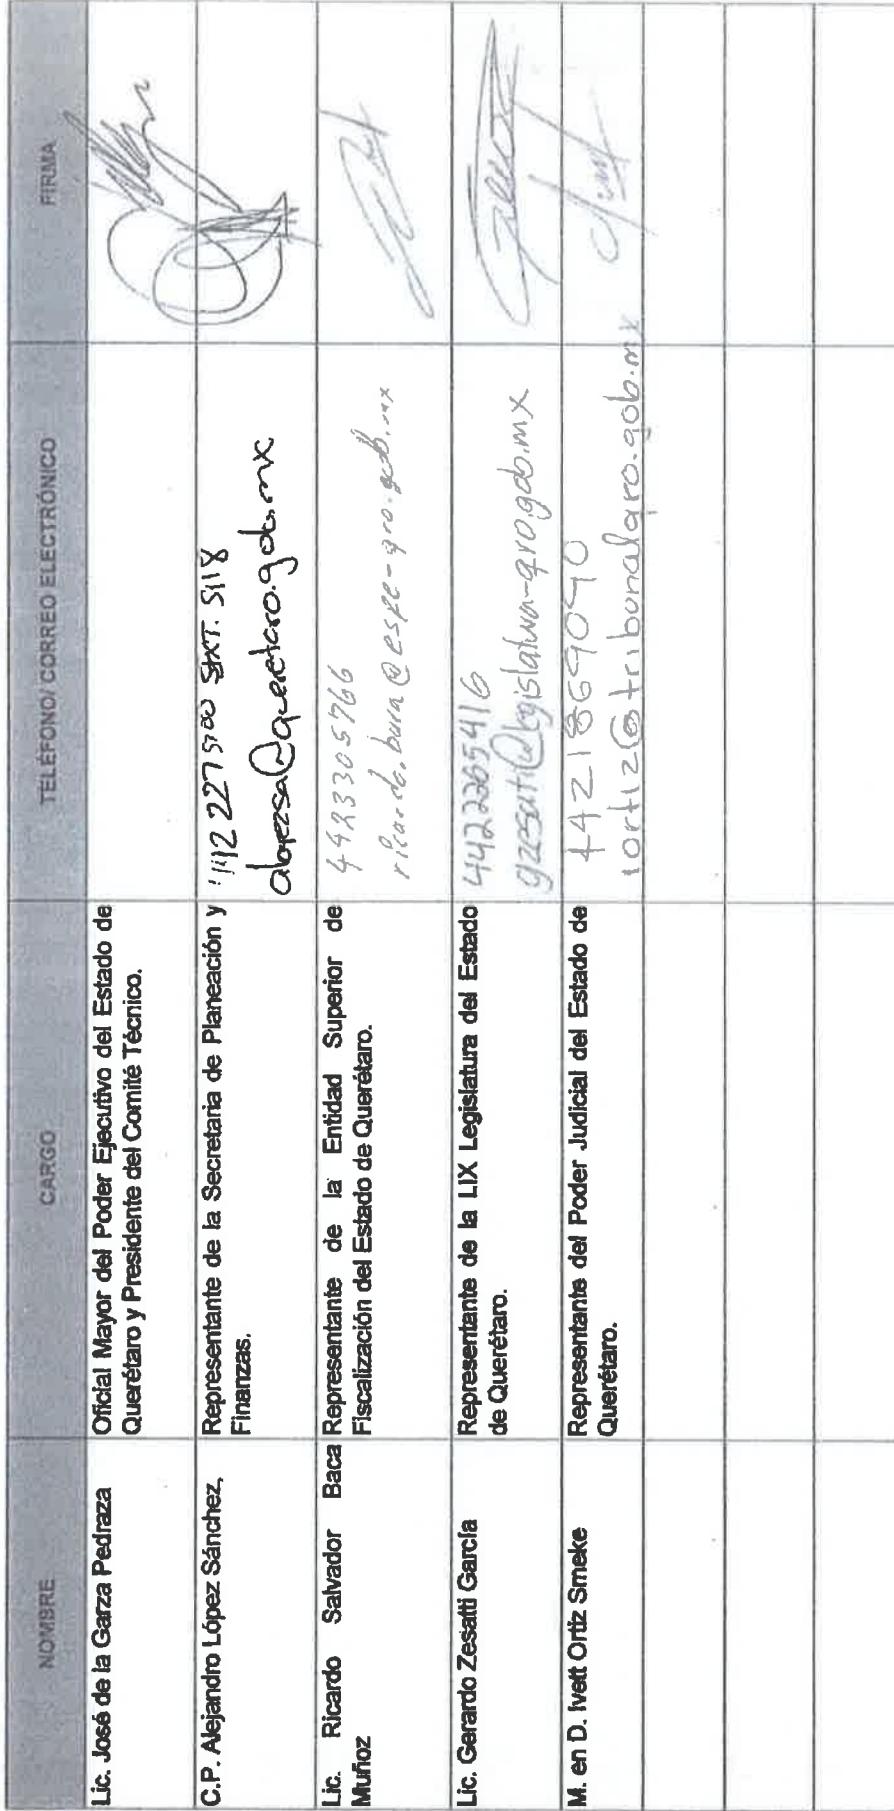 NOMBRE CARGO TELÉFONO/ CORREO ELECTRÓNICO FIRMA
Lic. José de la Garza Pedraza
Oficial Mayor del Poder Ejecutivo del Estado de
Querétaro y Presidente del Comité Técnico.
C.P. Alejandro López Sánchez,
Representante de la Secretaria de Planeación y
Finanzas.
442 227 5100 EXT. 5118
alopezsa@queretaro.gob.mx
Lic. Ricardo Salvador Baca
Muñoz
Representante de la Entidad Superior de
Fiscalización del Estado de Querétaro.
4423305766
Lic. Gerardo Zesatti García
Representante de la LIX Legislatura del Estado
de Querétaro.
4422265416
gzesati@legislatura-qro.gob.mx
M. en D. Ivett Ortiz Smeke
Representante del Poder Judicial del Estado de
Querétaro.
4421869040
iortiz@tribunalqro.gob.mx